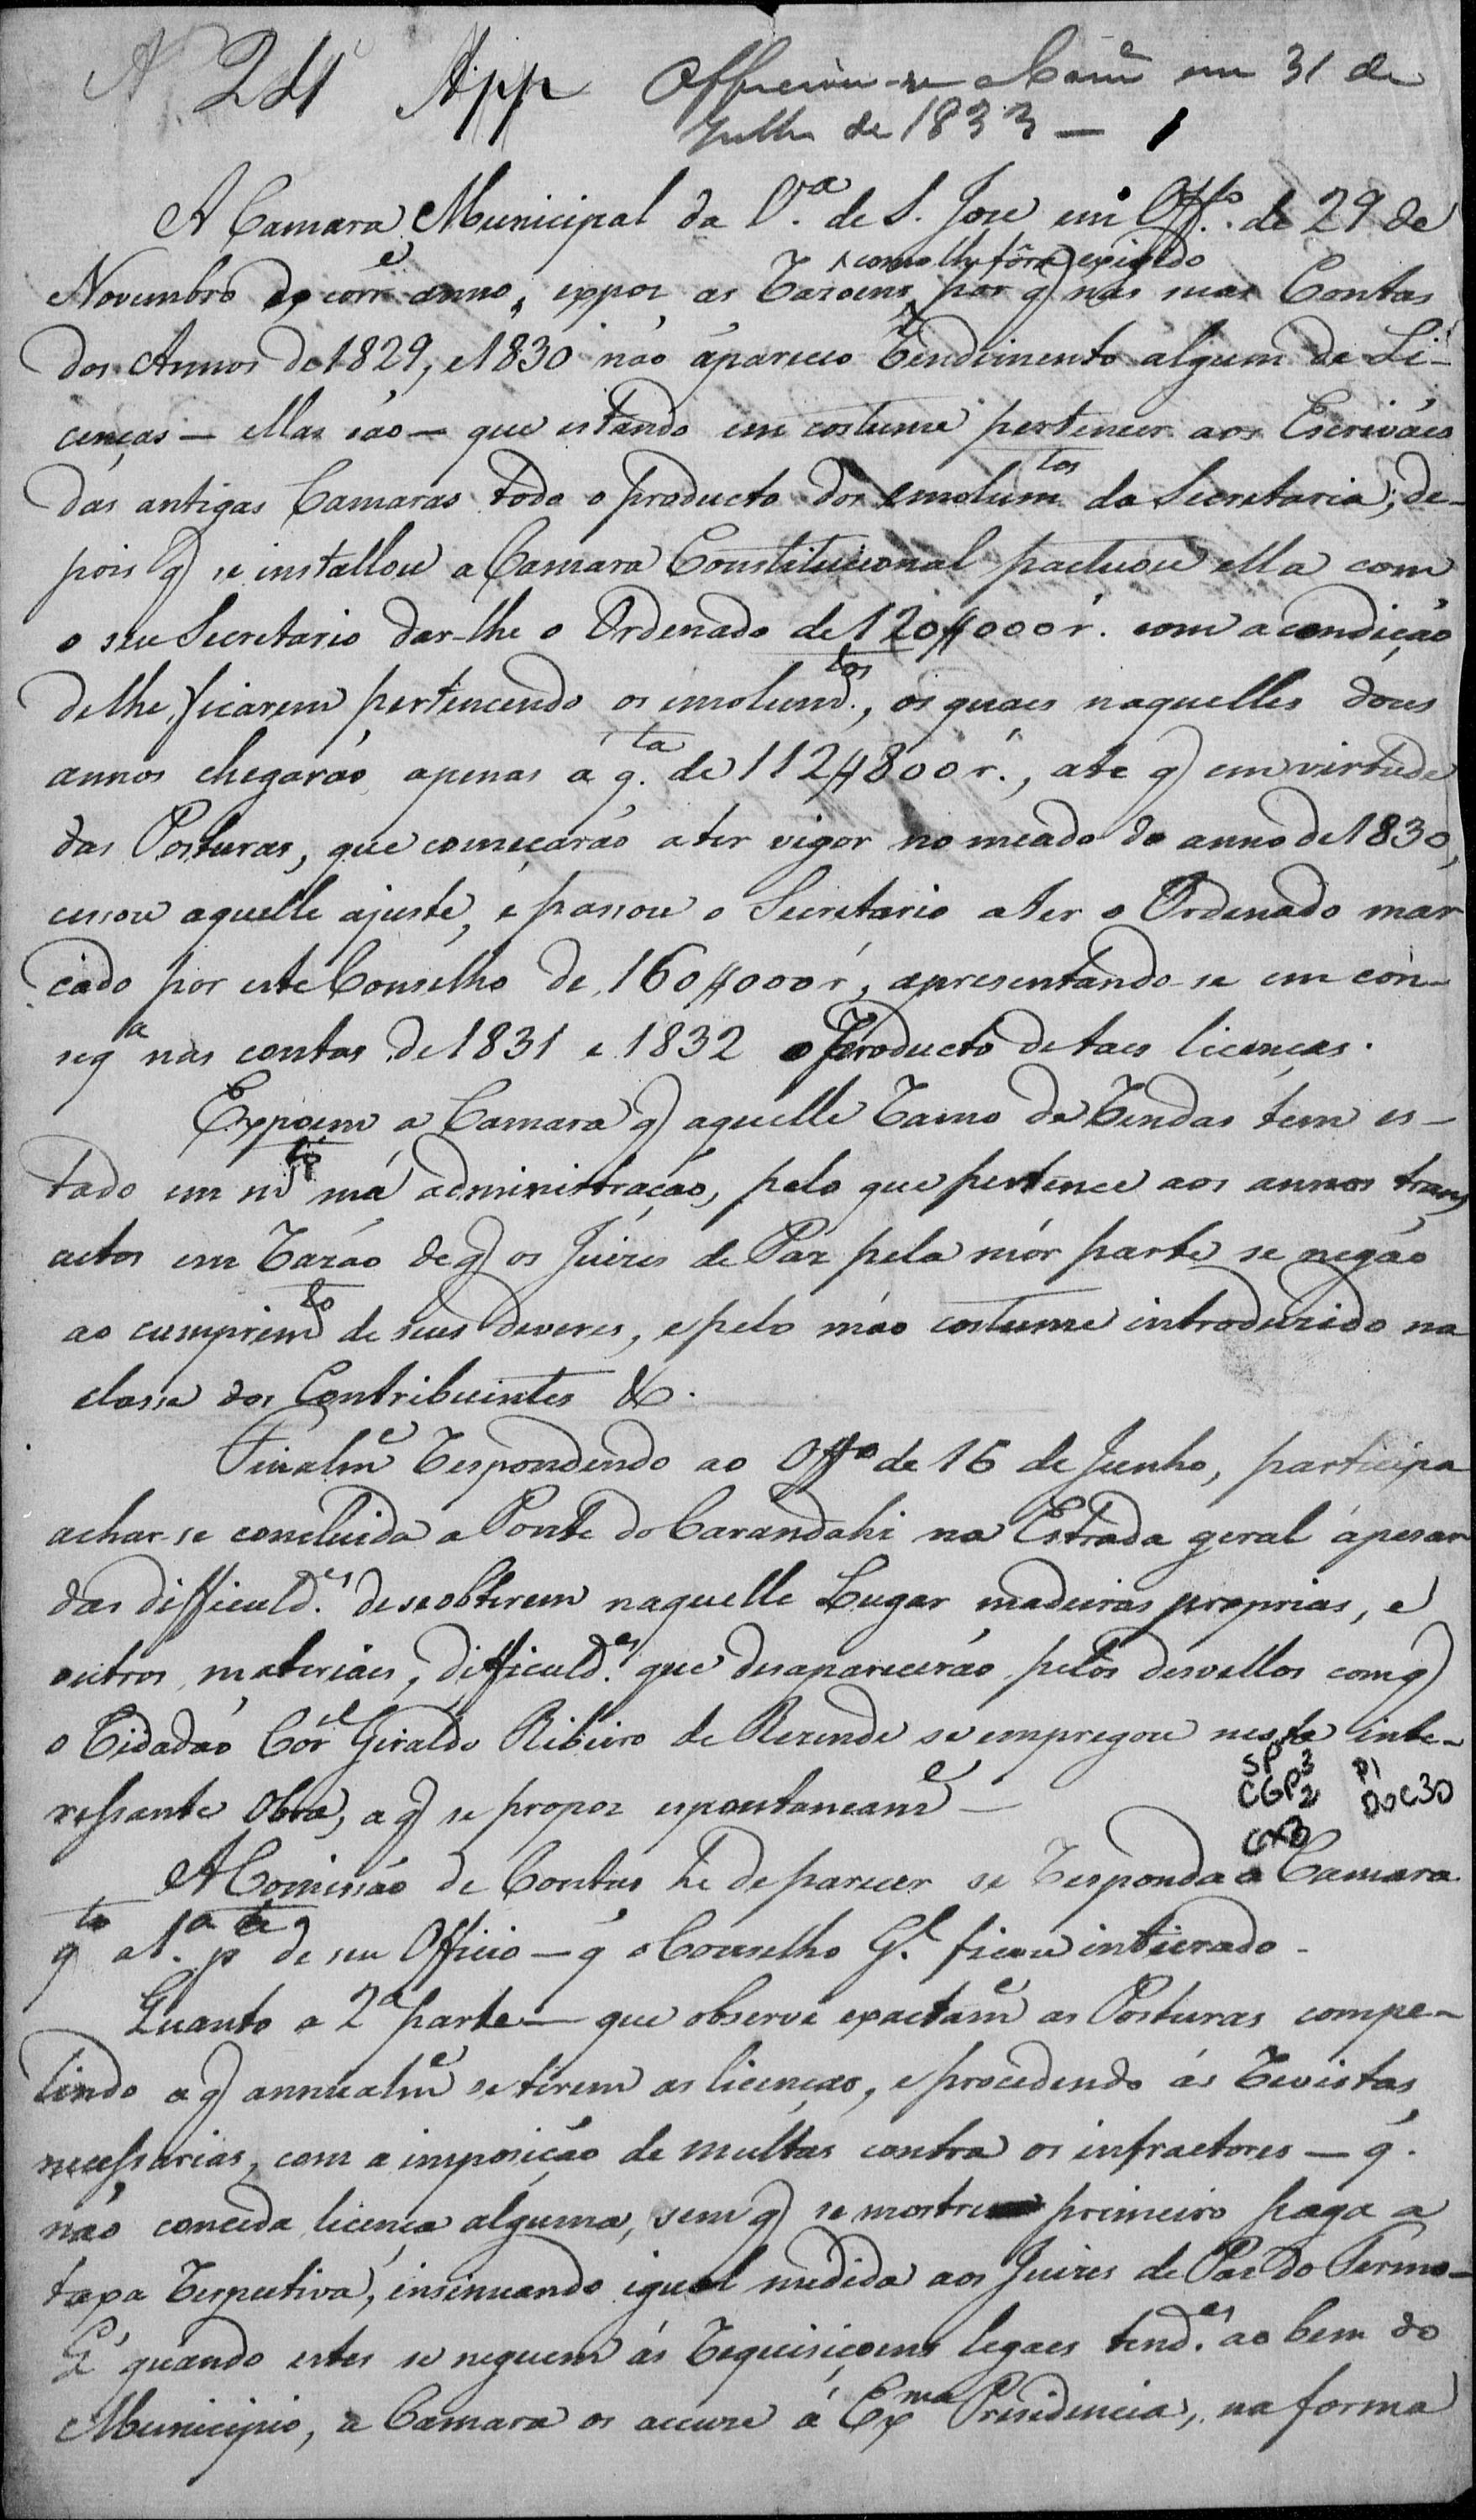 N 241 App Officiou-se á Camª em 31 de
Julho de 1833 —
A Camara Municipal da V.ª de S. Jose em Off.º de 29 de
como lhe fôra exigido
Novembro do corr.e anno, expoz as Razoens por q nas suas Contas
dos Annos de 1829, e 1830 não appareceo Rendimento algum de Li-
cenças — ellas são — que estando em costume pertencer aos Escrivães
das antigas Camaras todo o producto dos emolum.tos da Secretaria, de-
pois q se installou a Camara Constitucional pactuou ella com
o seu Secretario dar-lhe o Ordenado de 120$000 r. com a condição
de lhe ficarem pertencendo os emolum.tos, os quaes naquelles dous
annos chegarão apenas á q.ta de 112$800 r., até q em virtude
das Posturas, que começarão a ter vigor no meado do anno de 1830,
cessou aquelle ajuste, e passou o Secretario a ter o Ordenado mar
cado por este Conselho de 160$000 r, apresentando-se em con-
seq.ª nas contas de 1831 e 1832 o Producto de taes licenças.
Expoem a Camara q aquelle Ramo de Rendas tem es-
tado em m.to má administração, pelo que pertence aos annos trans
actos em Razão de q os Juizes de Paz pela mór parte se negão
ao cumprim.to de seus deveres, e pelo máo costume introduzido na
classe dos Contribuintes &c.
Finalm.e Respondendo ao Off.º de 16 de Junho, participa
achar-se concluida a Ponte do Carandahi na Estrada geral apesar
das difficuld.es de se obterem naquelle Lugar madeiras proprias, e
outros materiáes, difficuld.es que desaparecerão pelos desvellos com q
o Cidadão Cor.el Giraldo Ribeiro de Rezende se empregou nesta inte-
ressante Obra, a q se propoz espontaneam.e —
SP
CGP3 2 P1
Cx3 Doc30
A Comissão de Contas he de parecer se Responda á Camara
q.to a 1.ª p.te de seu Officio — q o Conselho G.l ficou inteirado.
Quanto a 2ª parte — que observe exactam.e as Posturas compe-
lindo a q annualm.e se tirem as licenças, e procedendo ás Revistas
necessarias, com a imposição de multas contra os infractores — q.
não conceda licença alguma, sem q se mostre primeiro paga a
taxa Respectiva, insinuando igual medida aos Juizes de Paz do Termo —
E quando estes se neguem ás Requisiçoens legaes tend.es ao bem do
Municipio, a Camara os accuse á Ex.ma Presidencia, na forma